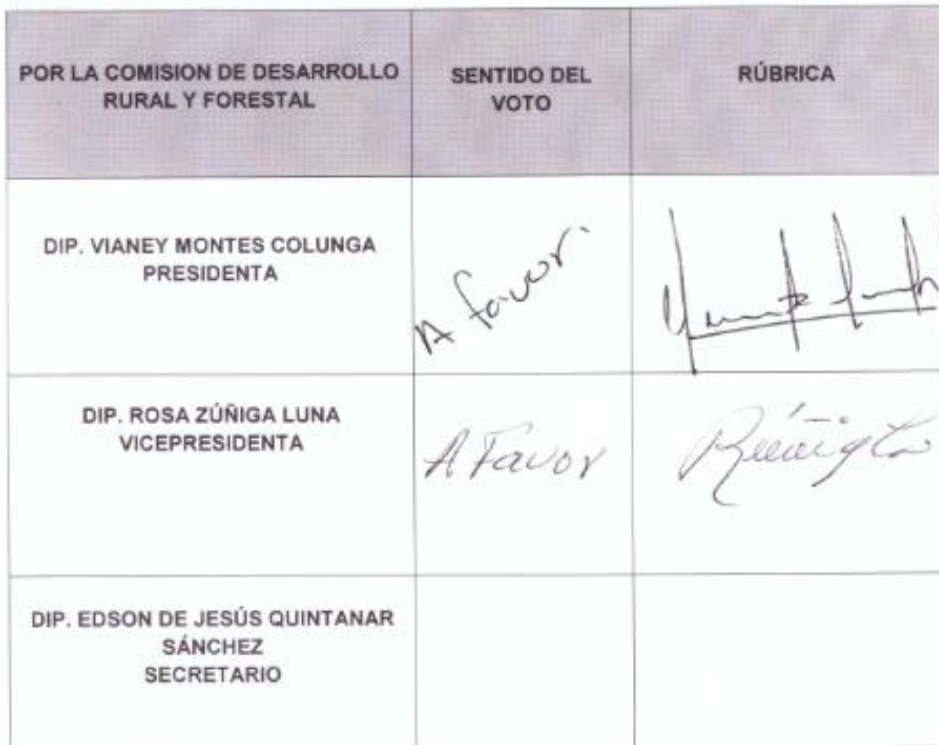 POR LA COMISION DE DESARROLLO
RURAL Y FORESTAL
SENTIDO DEL
VOTO
RÚBRICA
DIP. VIANEY MONTES COLUNGA
PRESIDENTA
A favor.
DIP. ROSA ZÚÑIGA LUNA
VICEPRESIDENTA
A Favor
DIP. EDSON DE JESÚS QUINTANAR
SÁNCHEZ
SECRETARIO